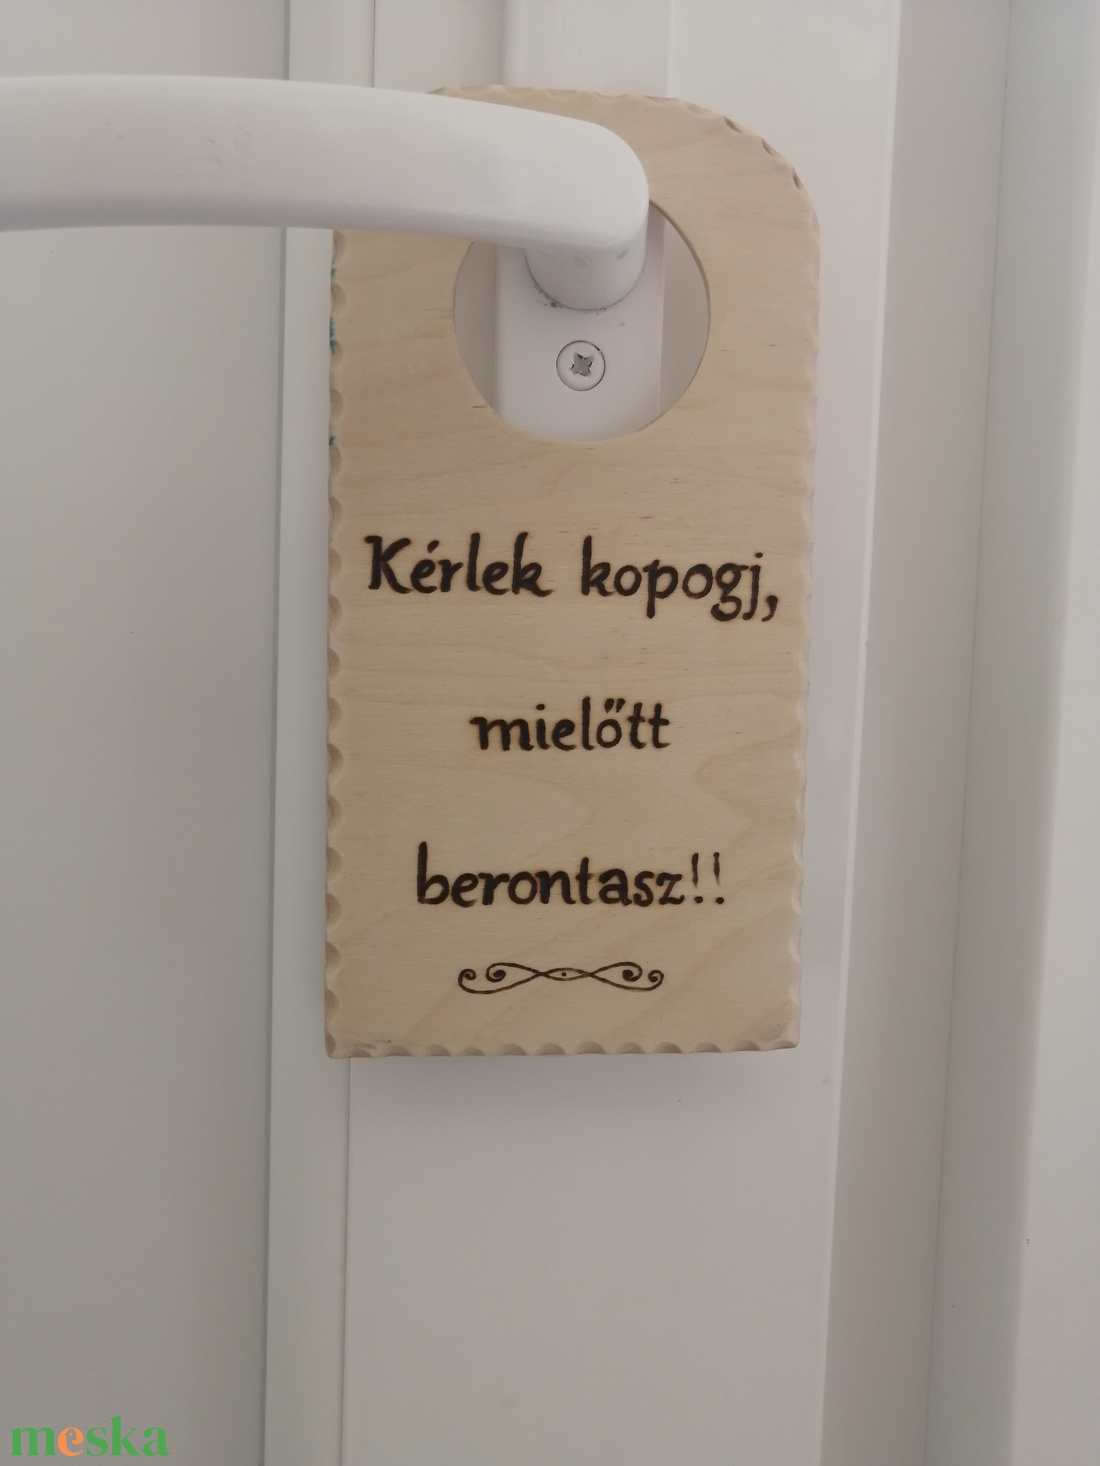 Kérlek kopogj,
mielőtt
berontasz!!
meska